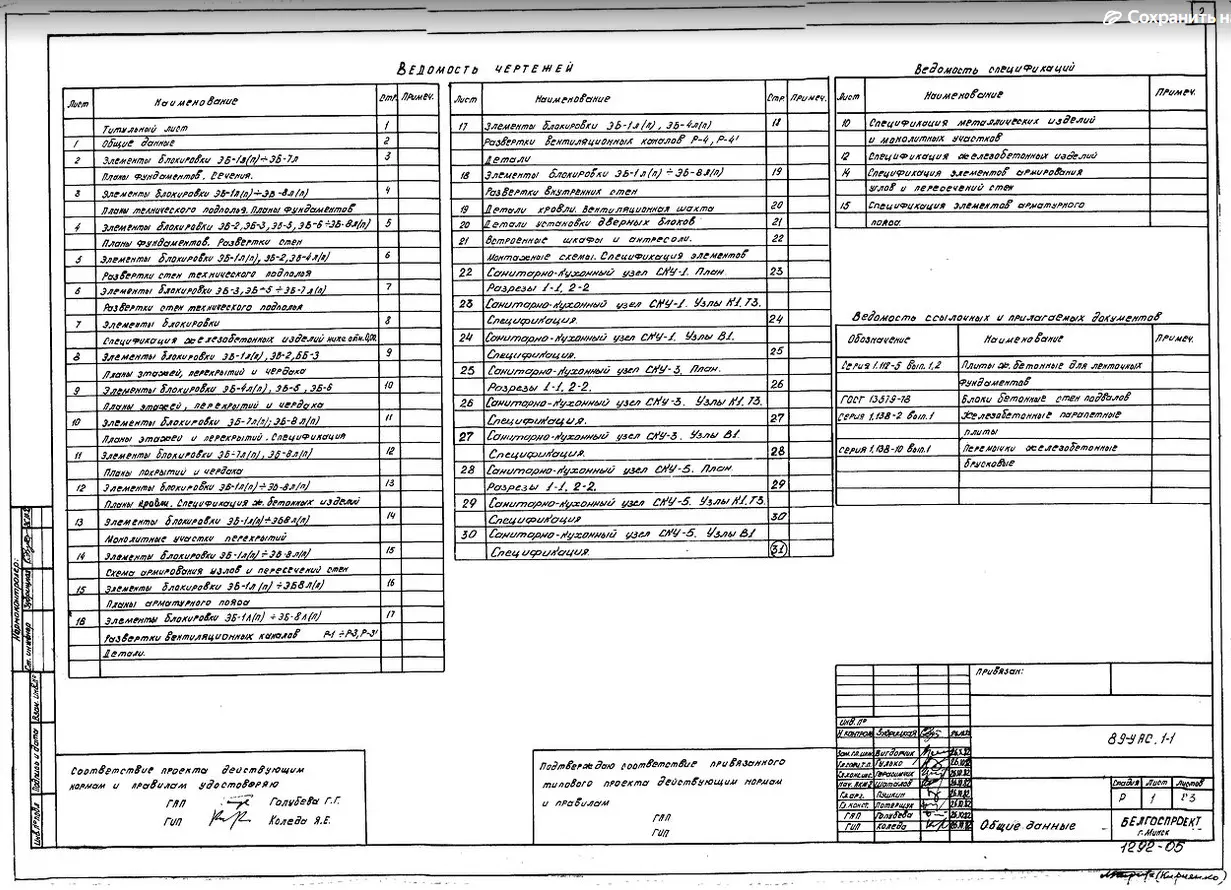 2
Сохранить н
Ведомость чертежей
Лист Наименование Стр. Примеч.
Титульный лист 1
1 Общие данные 2
2 Элементы блокировки ЭБ-1л(п)÷ЭБ-7л 3
Планы фундаментов. Сечения.
3 Элементы блокировки ЭБ-1л(п)÷ЭВ-8л(п) 4
Планы технического подполья. Планы фундаментов
4 Элементы блокировки ЭБ-2, ЭБ-3, ЭБ-5, ЭБ-6÷ЭБ-8л(п) 5
Планы фундаментов. Развертки стен
5 Элементы блокировки ЭБ-1л(п), ЭБ-2, ЭБ-4л(п) 6
Развертки стен технического подполья
6 Элементы блокировки ЭБ-3, ЭБ-5÷ЭБ-7л(п) 7
Развертки стен технического подполья
7 Элементы блокировки 8
Спецификация железобетонных изделий ниже отм. 0,00
8 Элементы блокировки ЭБ-1л(п), ЭБ-2, ББ-3 9
Планы этажей, перекрытий и чердака
9 Элементы блокировки ЭБ-4л(п), ЭБ-5, ЭБ-6 10
Планы этажей, перекрытий и чердака
10 Элементы блокировки ЭБ-7л(п); ЭБ-8л(п) 11
Планы этажей и перекрытий. Спецификация
11 Элементы блокировки ЭБ-7л(п), ЭБ-8л(п) 12
Планы покрытий и чердака
12 Элементы блокировки ЭБ-1л(п)÷ЭБ-8л(п) 13
Планы кровли. Спецификация ж. бетонных изделий
13 Элементы блокировки ЭБ-1л(п)÷ЭБ8л(п) 14
Монолитные участки перекрытий
14 Элементы блокировки ЭБ-1л(п)÷ЭБ-8л(п) 15
Схема армирования узлов и пересечений стен
15 Элементы блокировки ЭБ-1л(п)÷ЭБ8л(п) 16
Планы арматурного пояса
16 Элементы блокировки ЭБ-1л(п)÷ЭБ-8л(п) 17
Развертки вентиляционных каналов Р-1÷Р-3, Р-3'
Детали.
Лист Наименование Стр. Примеч.
17 Элементы блокировки ЭБ-1л(п), ЭБ-4л(п) 18
Развертки вентиляционных каналов Р-4, Р-4'
Детали
18 Элементы блокировки ЭБ-1л(п)÷ЭБ-8л(п) 19
Развертки внутренних стен
19 Детали кровли. Вентиляционная шахта 20
20 Детали установки дверных блоков 21
21 Встроенные шкафы и антресоли. 22
Монтажные схемы. Спецификация элементов
22 Санитарно-кухонный узел СКУ-1. План. 23
Разрезы 1-1, 2-2
23 Санитарно-кухонный узел СКУ-1. Узлы К1, Т3.
Спецификация. 24
24 Санитарно-кухонный узел СКУ-1. Узлы В1.
Спецификация. 25
25 Санитарно-кухонный узел СКУ-3. План.
Разрезы 1-1, 2-2. 26
26 Санитарно-кухонный узел СКУ-3. Узлы К1, Т3.
Спецификация. 27
27 Санитарно-кухонный узел СКУ-3. Узлы В1.
Спецификация. 28
28 Санитарно-кухонный узел СКУ-5. План.
Разрезы 1-1, 2-2. 29
29 Санитарно-кухонный узел СКУ-5. Узлы К1, Т3.
Спецификация 30
30 Санитарно-кухонный узел СКУ-5. Узлы В1
Спецификация. 31
Ведомость спецификаций
Лист Наименование Примеч.
10 Спецификация металлических изделий
и монолитных участков
12 Спецификация железобетонных изделий
14 Спецификация элементов армирования
узлов и пересечений стен
15 Спецификация элементов арматурного
пояса.
Ведомость ссылочных и прилагаемых документов
Обозначение Наименование Примеч.
Серия 1.112-5 вып. 1,2 Плиты ж. бетонные для ленточных
фундаментов
ГОСТ 13579-78 Блоки бетонные стен подвалов
Серия 1.138-2 вып. 1 Железобетонные парапетные
плиты
Серия 1.138-10 вып. 1 Перемычки железобетонные
брусковые
Нормоконтроль:
Ст. инженер
Взам. инв. №
Подпись и дата
Инв. № подл
Соответствие проекта действующим
нормам и правилам удостоверяю
ГАП Голубева Г.Г.
ГИП Коледа Я.Е.
Подтверждаю соответствие привязанного
типового проекта действующим нормам
и правилам
ГАП
ГИП
Привязан:
Инв. №
Н. контроль
Вигдорчик
Гулько
Герасимчик
Шаталов
Пушкин
Гл. конст. Потерщук
ГАП Голубева
ГИП Коледа
89-УАС.1-1
Стадия Лист Листов
Р 1
Общие данные
БЕЛГОСПРОЕКТ
г. Минск
1292-05
(Кириенко)